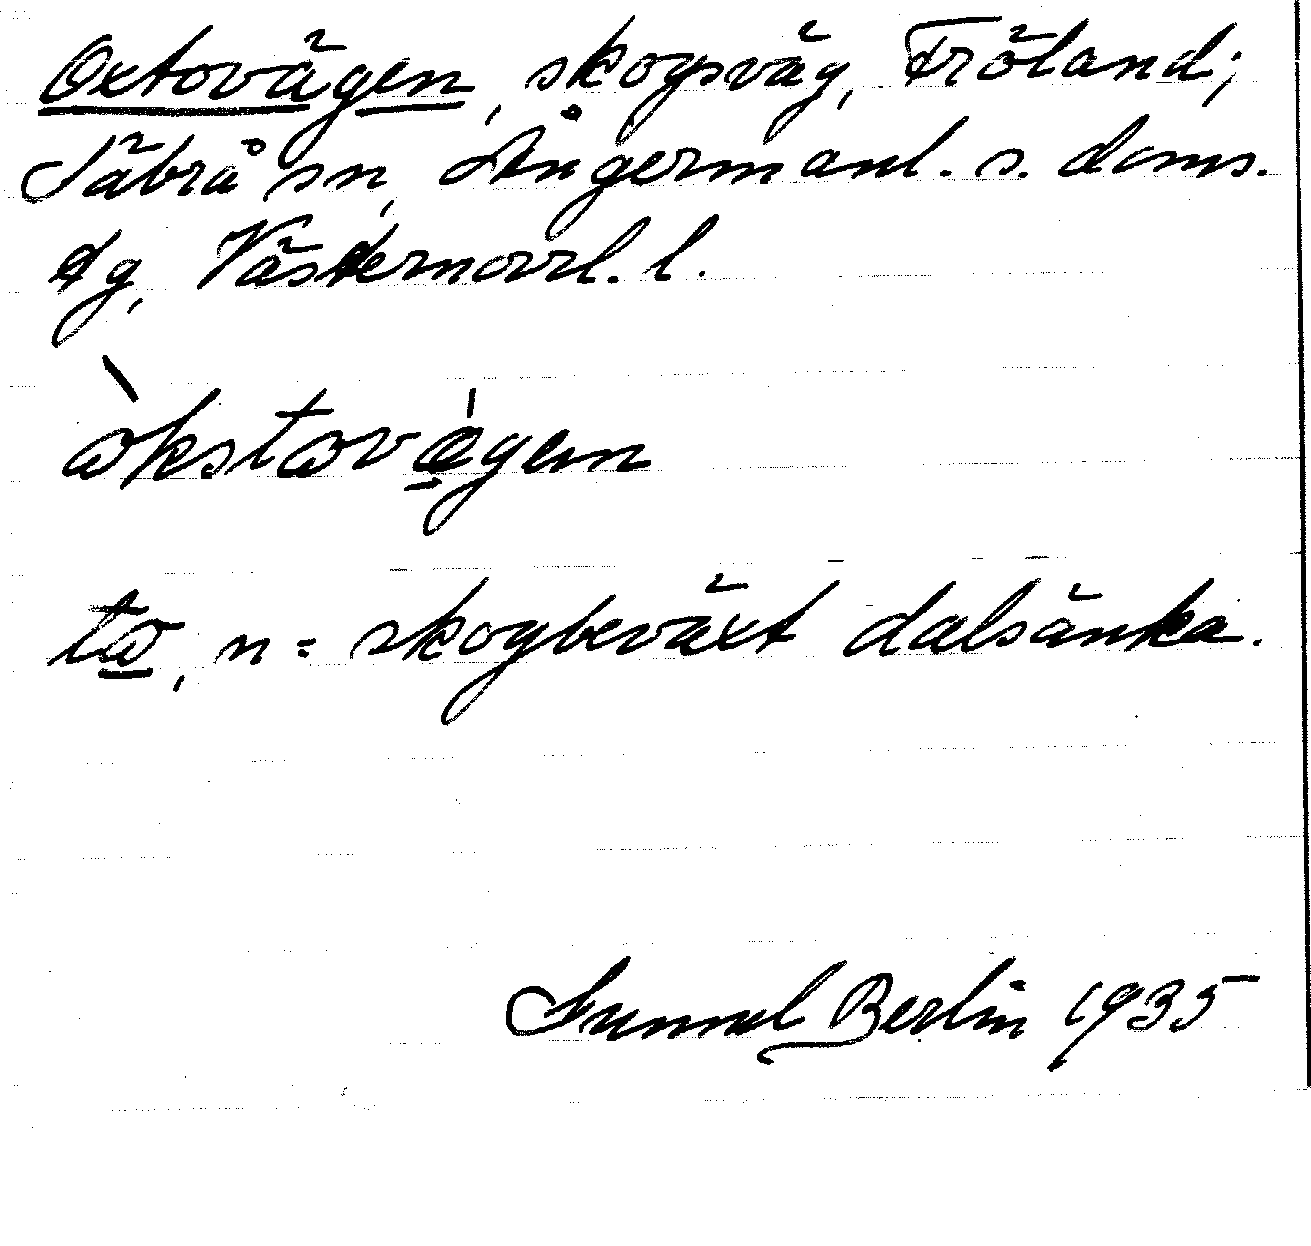 Oxtovägen, skogsväg, Fröland;
Säbrå sn, Ångermanl. s. doms.
dg, Västernorrl. l.
òkstovä́gen
to, n = skogbeväxt dalsänka.
Gunnel Berlin 1935